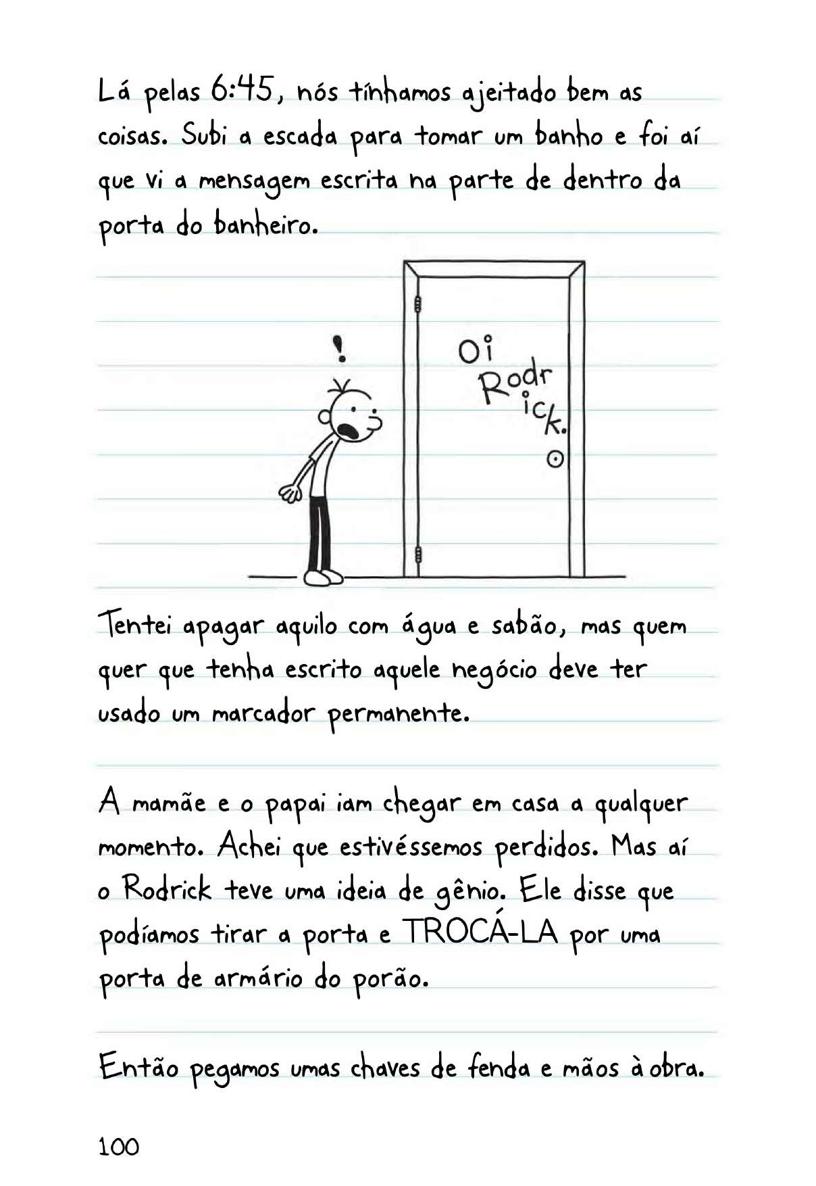 Lá pelas 6:45, nós tínhamos ajeitado bem as
coisas. Subi a escada para tomar um banho e foi aí
que vi a mensagem escrita na parte de dentro da
porta do banheiro.
!
Oi
Rodr
ick.
Tentei apagar aquilo com água e sabão, mas quem
quer que tenha escrito aquele negócio deve ter
usado um marcador permanente.
A mamãe e o papai iam chegar em casa a qualquer
momento. Achei que estivéssemos perdidos. Mas aí
o Rodrick teve uma ideia de gênio. Ele disse que
podíamos tirar a porta e TROCÁ-LA por uma
porta de armário do porão.
Então pegamos umas chaves de fenda e mãos à obra.
100